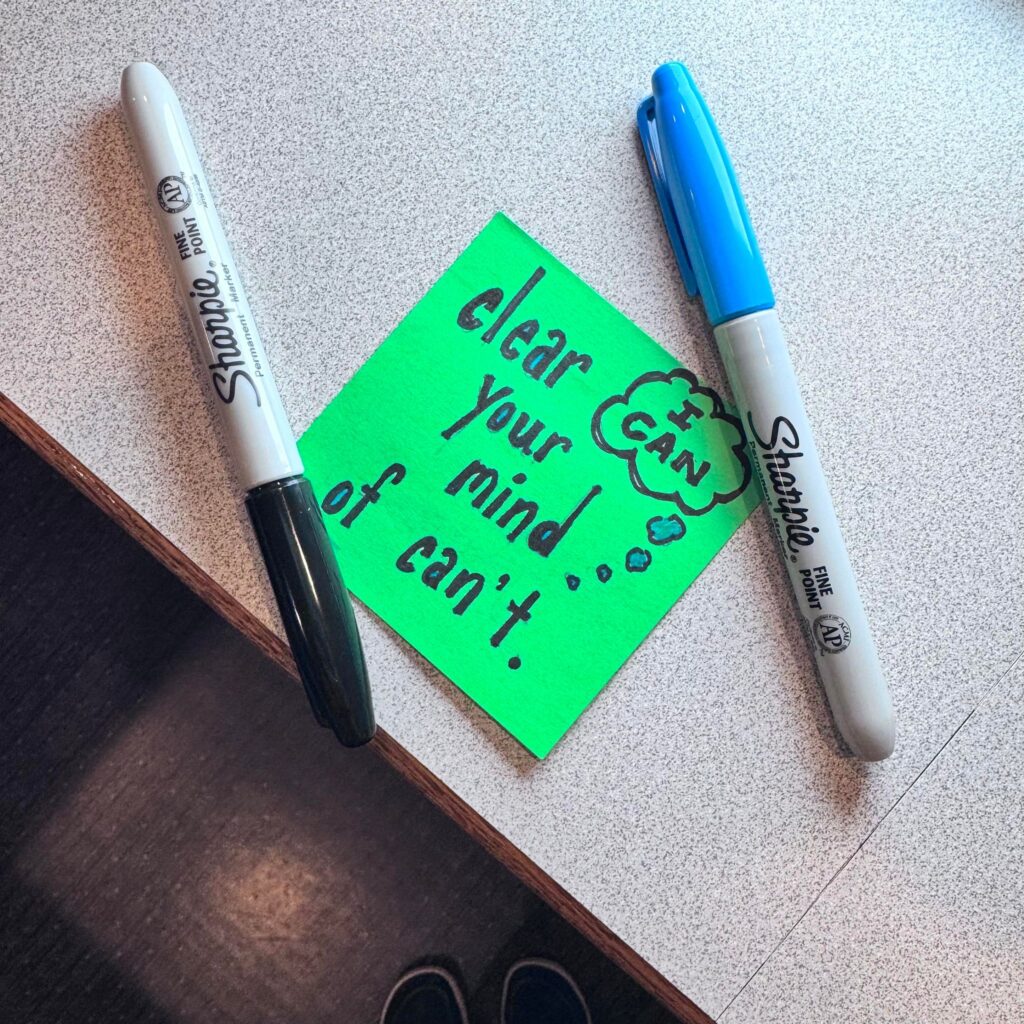 AP
FINE
POINT
Sharpie®
Permanent Marker
clear
your
mind
of can't.
I
CAN
Sharpie®
Permanent Marker
FINE
POINT
AP